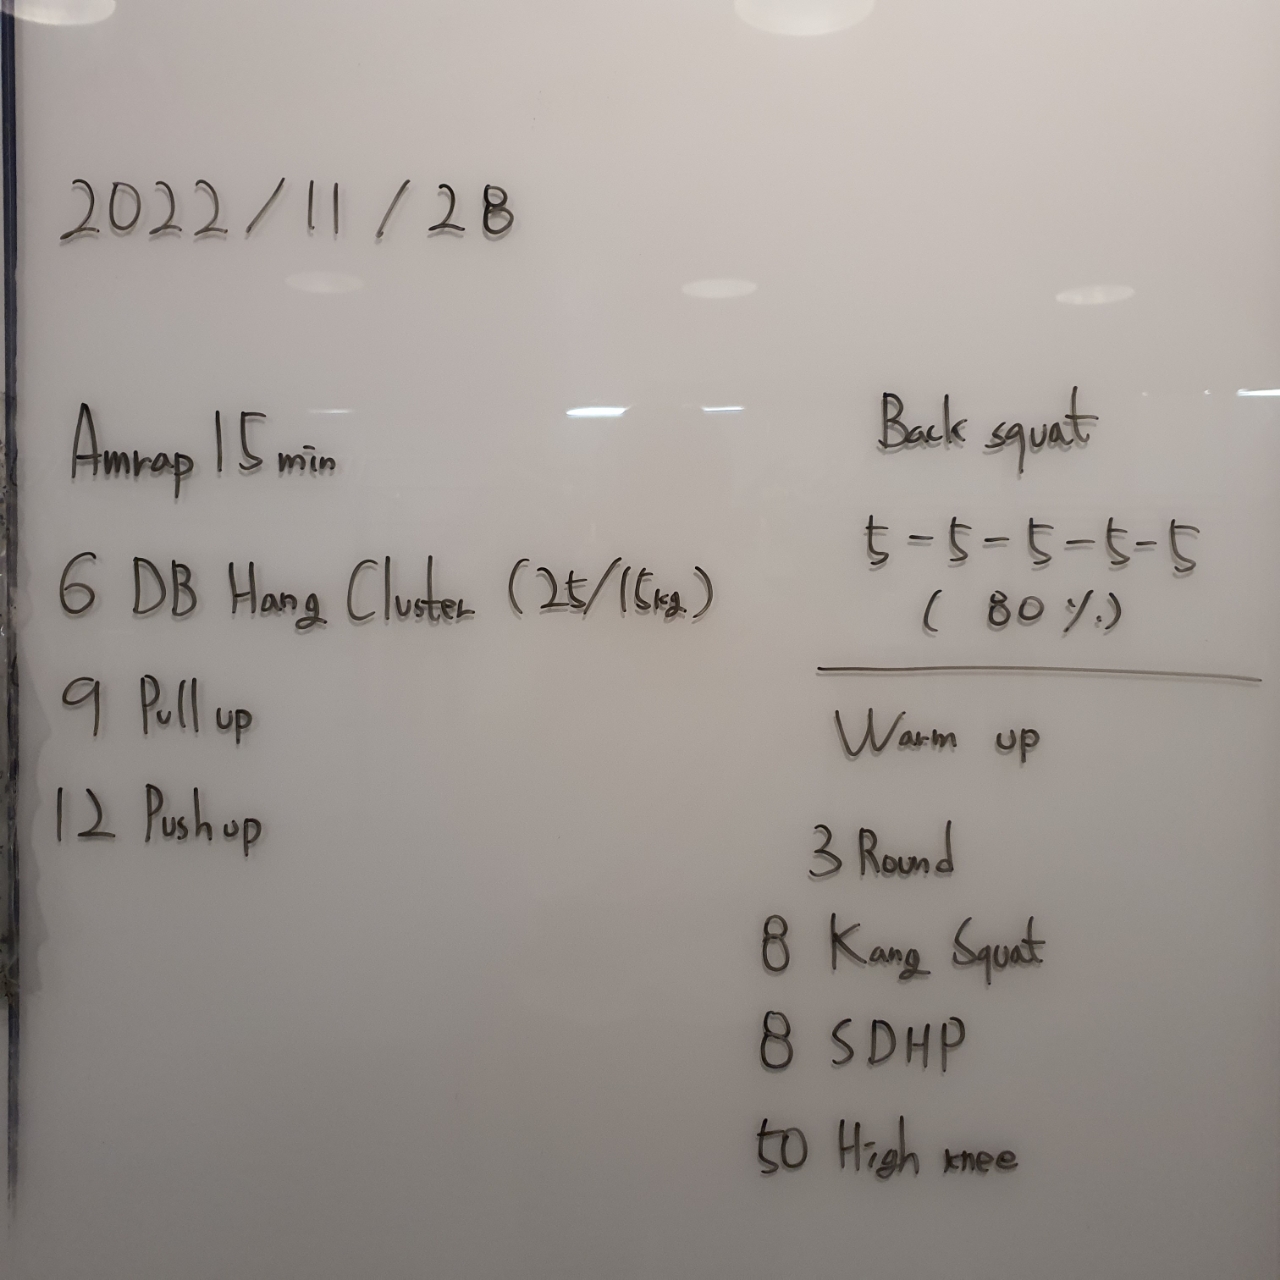 2022/11/28
Amrap 15 min
6 DB Hang Cluster (25/15kg)
9 Pull up
12 Push up
Back squat
5-5-5-5-5
( 80 %)
Warm up
3 Round
8 Kang Squat
8 SDHP
50 High knee